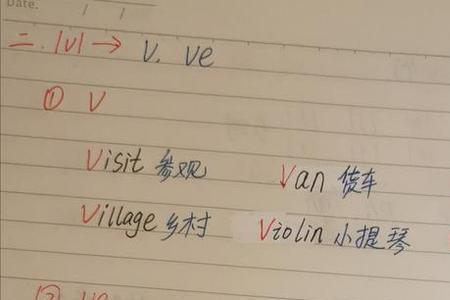 Date. / /
二. |v| → v. ve
① v
Visit 参观 Van 货车
Village 乡村 Violin 小提琴
② ve